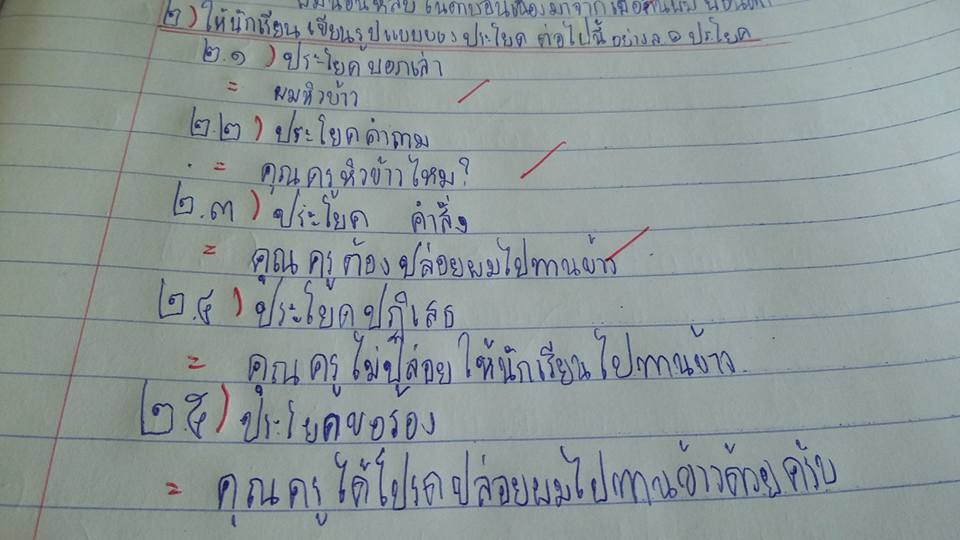 ผมนอนหลับ
๒) ให้นักเรียน เขียนรูปแบบของ ประโยค ต่อไปนี้ อย่างละ ๑ ประโยค
๒.๑) ประโยคบอกเล่า
= ผมหิวข้าว
๒.๒) ประโยคคำถาม
= คุณครูหิวข้าวไหม?
๒.๓) ประโยค คำสั่ง
= คุณครูต้องปล่อยผมไปทานข้าว
๒.๔) ประโยคปฏิเสธ
= คุณครูไม่ปล่อยให้นักเรียนไปทานข้าว
๒.๕) ประโยคขอร้อง
= คุณครูได้โปรดปล่อยผมไปทานข้าวด้วยครับ